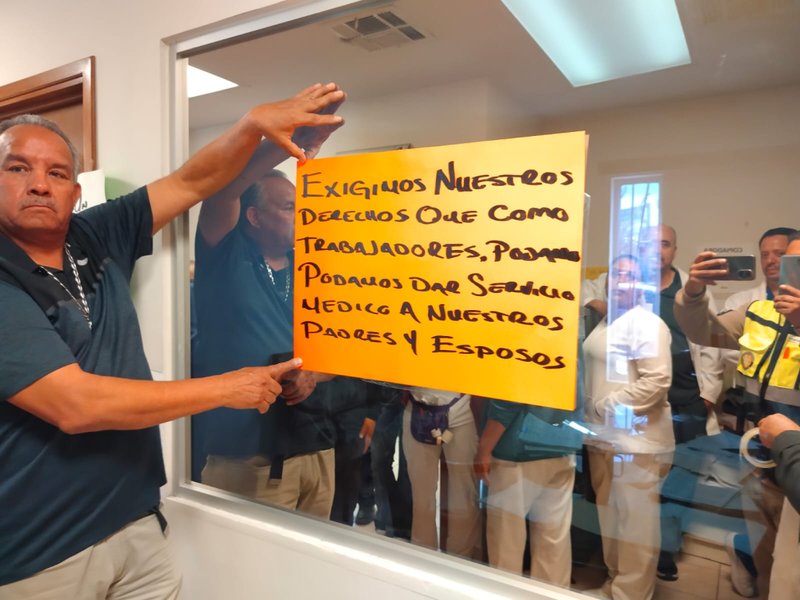 EXIGIMOS NUESTROS
DERECHOS QUE COMO
TRABAJADORES, PODAMOS
PODAMOS DAR SERVICIO
MEDICO A NUESTROS
PADRES Y ESPOSOS